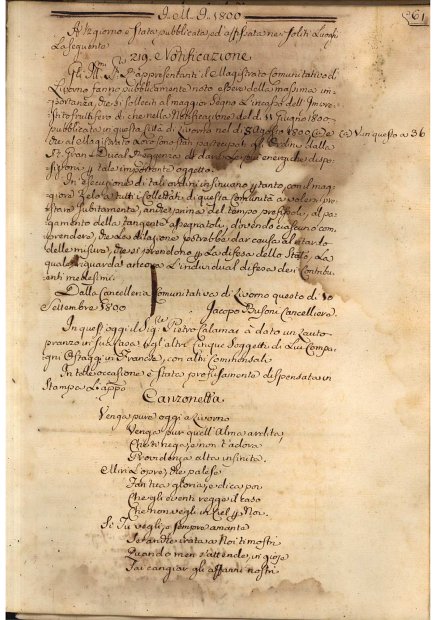 I. M. I. 1800
561
A 12 giorno è stata pubblicata, ed affissata ne' soliti Luoghi
La seguente
219. Notificazione
Gli Ill.mi SS.ri Rappresentanti il Magistrato Comunitativo di
Livorno fanno pubblicamente noto essere della massima im-
portanza, che si solleciti al maggior segno L'incasso dell'Impre-
stito fruttifero di che nella Notificazione del dì 11 Giugno 1800
pubblicata in questa Città di Livorno nel dì 8 1800
Vin questo a 36
che al Magistrato Loro sono stati partecipati gli Ordini dalla
Gran Ducal Reggenza di dare Le più energiche dispo-
sizioni per tale importante oggetto.
In esecuzione di tali ordini insinuano pertanto, con il mag-
gior Zelo a tutti i Collettati di questa Comunità a volersi pre-
stare subitamente, anche prima del tempo prefissoli, al pa-
gamento della tangente assegnatoli, dovendo ciascuno com-
prendere, che La dilazione potrebbe dar causa al ritardo
delle misure, che si prendono per La difesa dello Stato, La
quale riguarda ancora L'individual difesa dei Contribu-
enti medesimi.
Dalla Cancelleria Comunitativa di Livorno questo dì 10
Settembre 1800 Jacopo Busoni Cancelliere.
In quest'oggi il Sig.re Pietro Calamai à dato un Lauto
pranzo in sua Casa agl'altri Cinque Soggetti di Lui Compa-
gni Ostaggi in Francia, con altri Commensali
In tale occasione è stata profusamente dispensata in
Stampa L'app.
Canzonetta
Venga pure oggi a Livorno
Venga pur quell'Alma ardita,
Che ti nega, e non t'adora
Providenza alta infinita.
Miri L'opre, che palese
Fan tua gloria, e dica poi
Che gli eventi regge il caso
Che non vegli in Ciel per Noi.
Se Tu vegli, e sempre amante
Se anche irata a Noi ti mostri
Quando men s'attende, in gioje
Fai cangiar gli affanni nostri